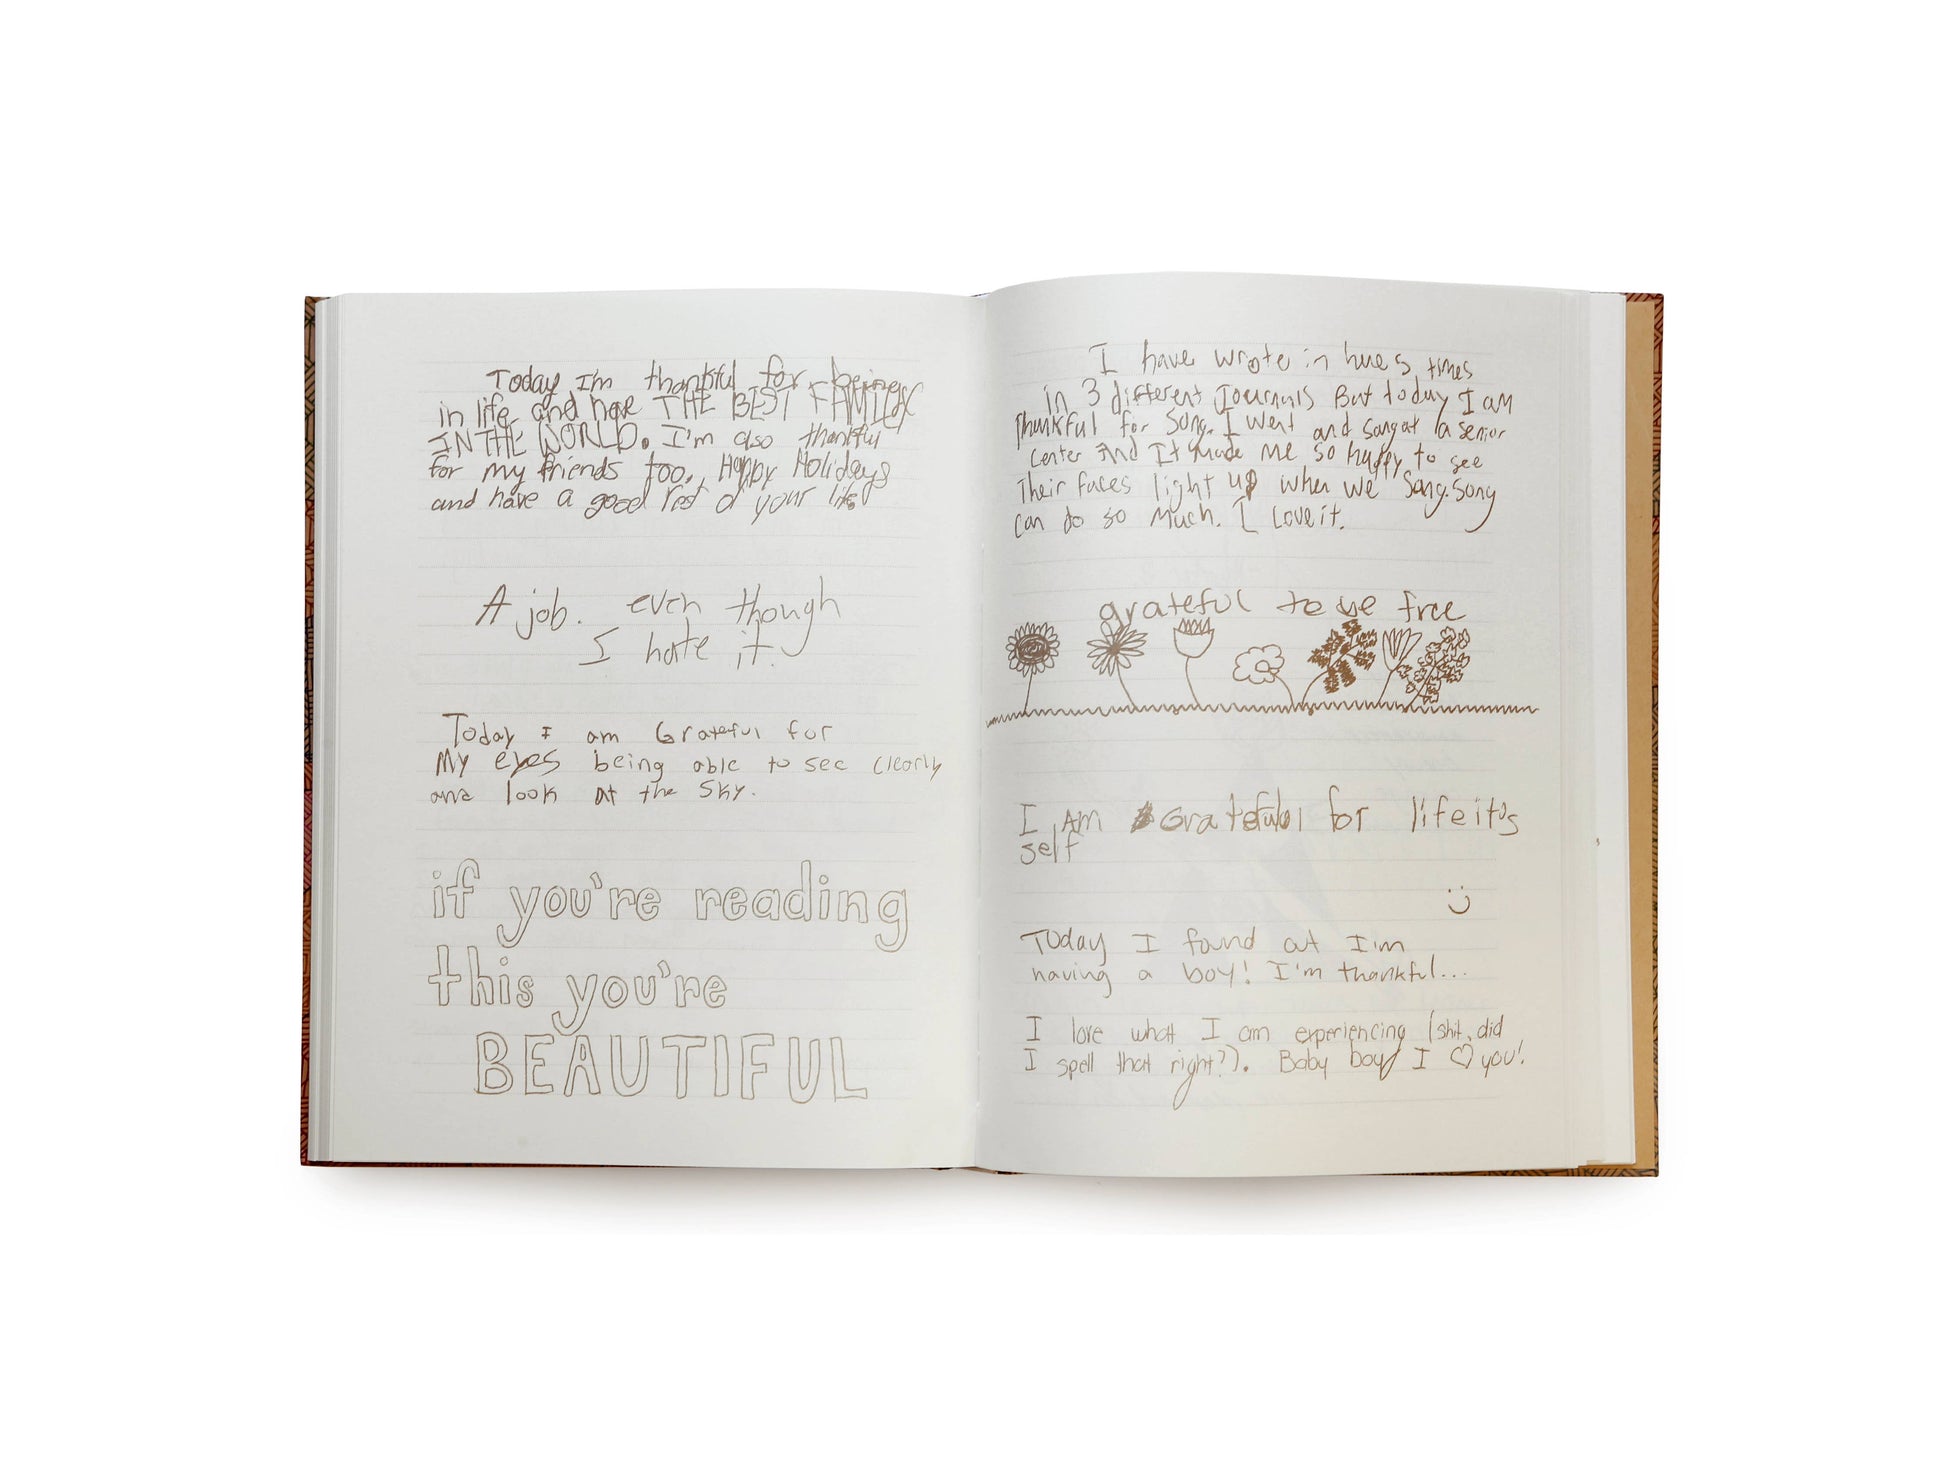 Today I'm thankful for being
in life and have THE BEST FAMILY
IN THE WORLD. I'm also thankful
for my friends too. Happy Holidays
and have a good rest of your life
A job. even though
I hate it.
Today I am Grateful for
My eyes being able to see clearly
and look at the sky.
if you're reading
this you're
BEAUTIFUL
I have wrote in here 5 times
in 3 different Journals But today I am
Thankful for Song. I went and sang at a senior
center And It made me so happy to see
Their faces light up when we Sang. Song
can do so Much. I Love it.
grateful to be free
I AM Grateful for life it's
self
Today I found out I'm
having a boy! I'm thankful...
I love what I am experiencing (shit, did
I spell that right?). Baby boy I ♡ you!